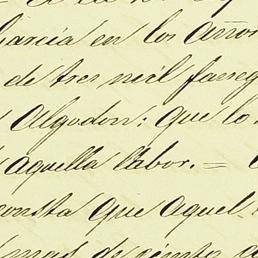 García en los Años
de tres mil faneg
Algodon: que lo
aquella labor. =
consta que aquel
mas de ciento